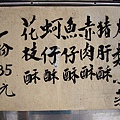 豬肝酥
赤肉酥
魚仔酥
蚵仔酥
花枝酥
一份35元